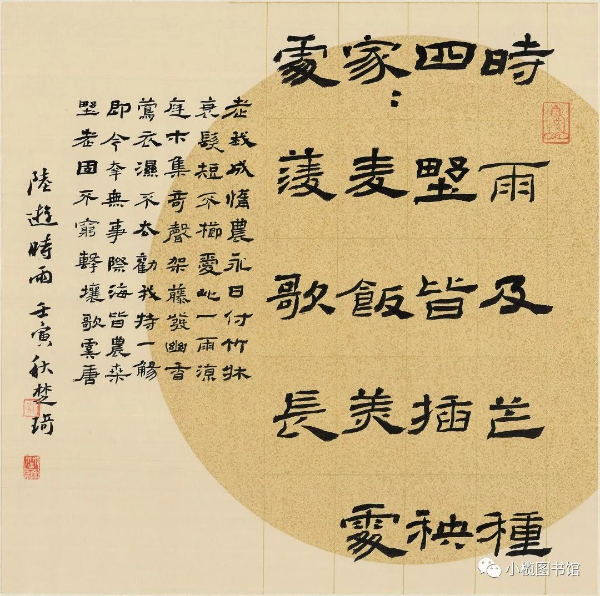 時雨及芒種
四野皆插秧
家:麦飯美處
處菱歌長
老我成惰農永日付竹牀
衰髮短不櫛愛此一雨涼
庭木集奇聲架藤發幽香
鶯衣濕不去勸我持一觴
即今幸無事際海皆農桑
野老固不窮擊壤歌虞唐
陸遊時雨 壬寅秋楚琦
小榄图书馆